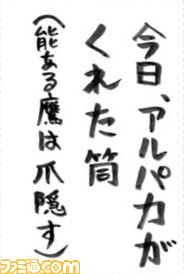 今日、アルパカが
くれた筒
(能ある鷹は爪隠す)
ファミ通.com